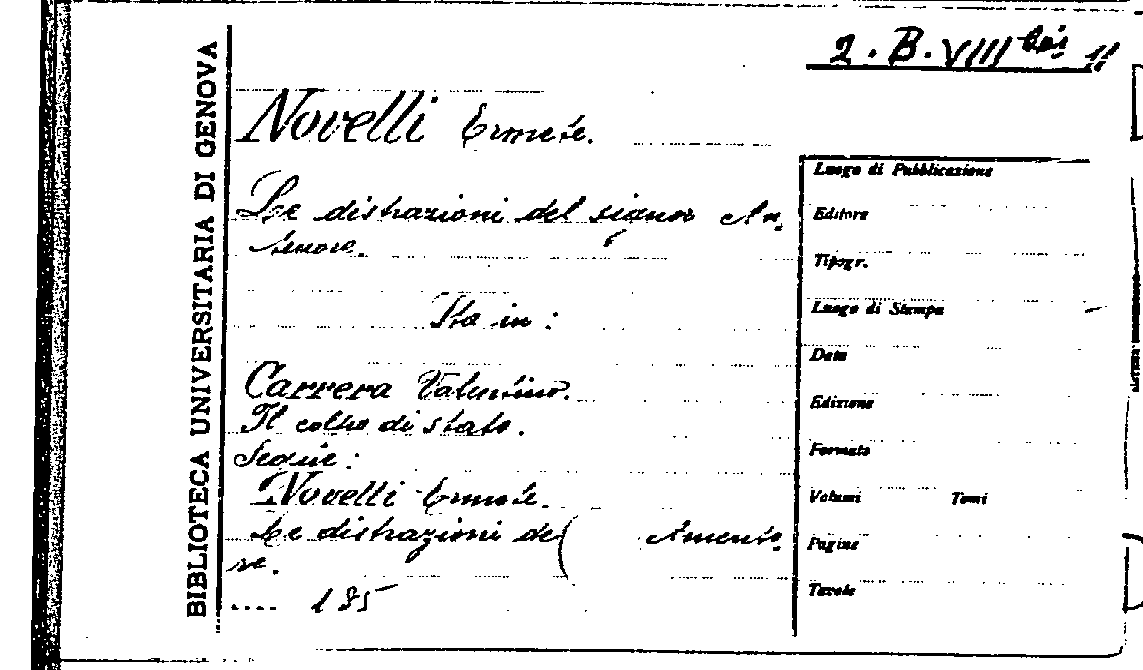 2. B. VIII bis 11
BIBLIOTECA UNIVERSITARIA DI GENOVA
Novelli Ermete.
Le distrazioni del signor An-
tenore.
Sta in:
Carrera Valentino.
Il colpo di stato.
Segue:
Novelli Ermete.
Le distrazioni del (
re.
.... 185
Luogo di Pubblicazione
Editore
Tipogr.
Luogo di Stampa
Data
Edizione
Formato
Volumi Tomi
Pagine
Tavole